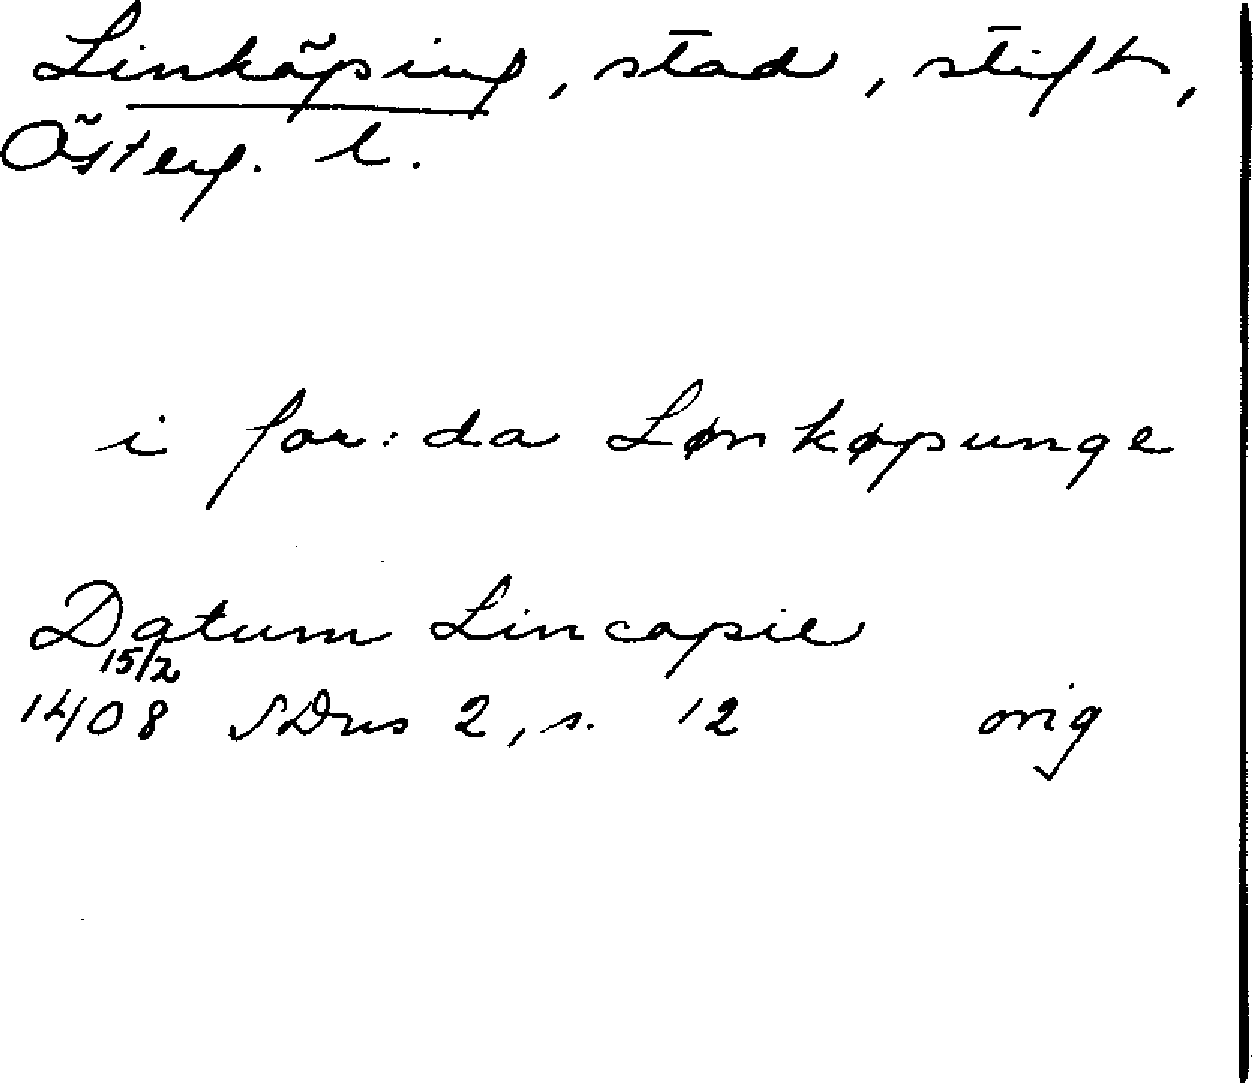 Linköping, stad, stift,
Österg. l.
i for:da Lønkøpunge
Datum Lincopie
15/2
1408 SDns 2, s. 12 orig